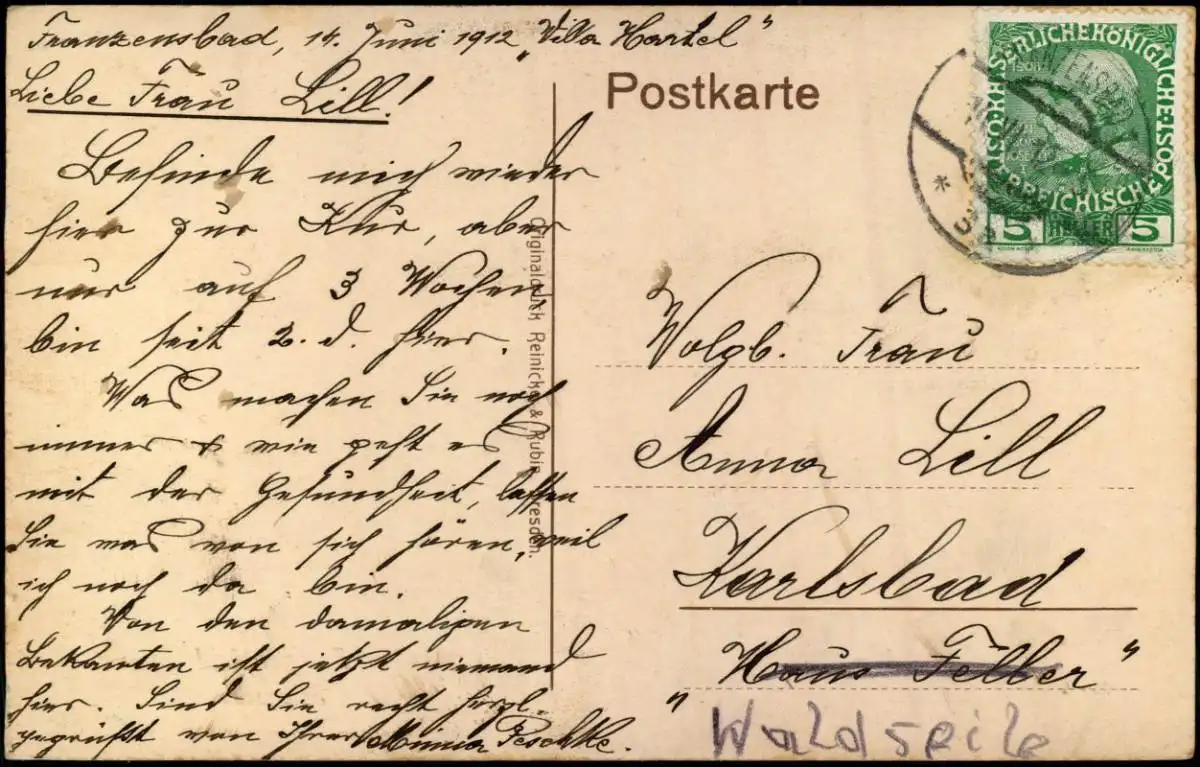 Franzensbad, 14. Juni 1912 „Villa Hartel"
Liebe Frau Lill!
Befinde mich wieder
hier zur Kur, aber
nur auf 3 Wochen
bin seit 2. d. hier.
Was machen Sie noch
immer & wie geht es
mit der Gesundheit, lassen
Sie was von sich hören, weil
ich noch da bin.
Von den damaligen
Bekannten ist jetzt niemand
hier. Sind Sie recht herzl.
gegrüßt von Ihrer Minna Peschke.
Originaldruck Reinicke & Rubin, Dresden.
Postkarte
KAISERLICHE KÖNIGLICHE
ÖSTERREICHISCHE POST
5 HELLER 5
Wolgb. Frau
Anna Lill
Karlsbad
„Haus Feller"
Waldseile